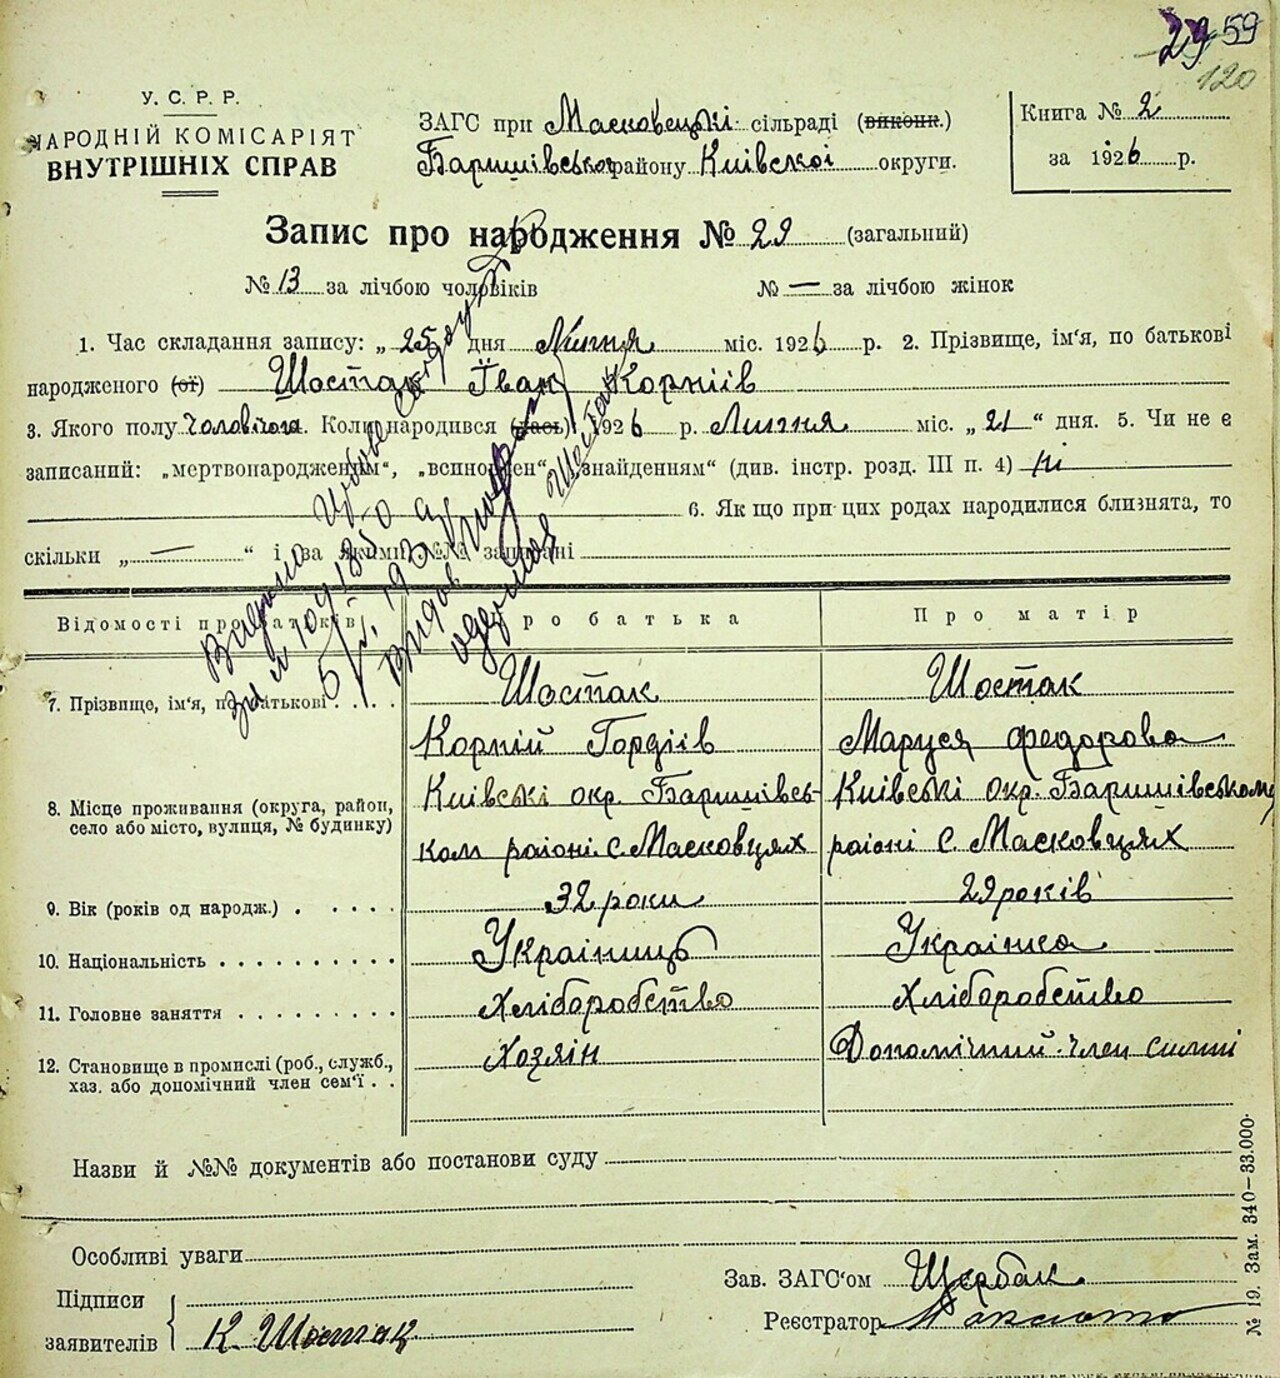 29 59
120
У. С. Р. Р.
НАРОДНІЙ КОМІСАРІЯТ
ВНУТРІШНІХ СПРАВ
ЗАГС при Масковецькі сільраді (виконк.)
Баришівського району Київскоі округи.
Книга № 2
за 1926 р.
Запис про народження № 29 (загальний)
№ 13 за лічбою чоловіків № — за лічбою жінок
1. Час складання запису: „ 25 " дня Липня міс. 1926 р. 2. Прізвище, ім'я, по батькові
народженого (ої) Шостак Їван Корніів
3. Якого полу Чоловічога. Коли народився (лась) 1926 р. Липня міс. „ 21 " дня. 5. Чи не є
записаний: „мертвонародженим", „всиновлен", „знайденням" (див. інстр. розд. III п. 4) ні
6. Як що при цих родах народилися близнята, то
скільки „ — " і за якими №№ записані
Відомості про батьків Про батька Про матір
7. Прізвище, ім'я, по батькові . . . .
Шостак
Корній Гордіів
Шостак
Маруся Федорова
8. Місце проживання (округа, район,
село або місто, вулиця, № будинку)
Київські окр. Баришівсь-
ком раіоні. с. Масковцях
Київські окр. Баришівському
раіоні с. Масковцях
9. Вік (років од народж.) . . . . . 32 роки 29 років
10. Національність . . . . . . . . . . Украінць Украінка
11. Головне заняття . . . . . . . . . Хліборобство Хліборобство
12. Становище в промислі (роб., служб.,
хаз. або допомічний член сем'ї . .
Хозяін Допомічний член симьі
Назви й №№ документів або постанови суду
Особливі уваги
Підписи
заявителів
К. Шостак
Зав. ЗАГС'ом Щербак
Реєстратор
№ 19. Зам. 340—33.000.